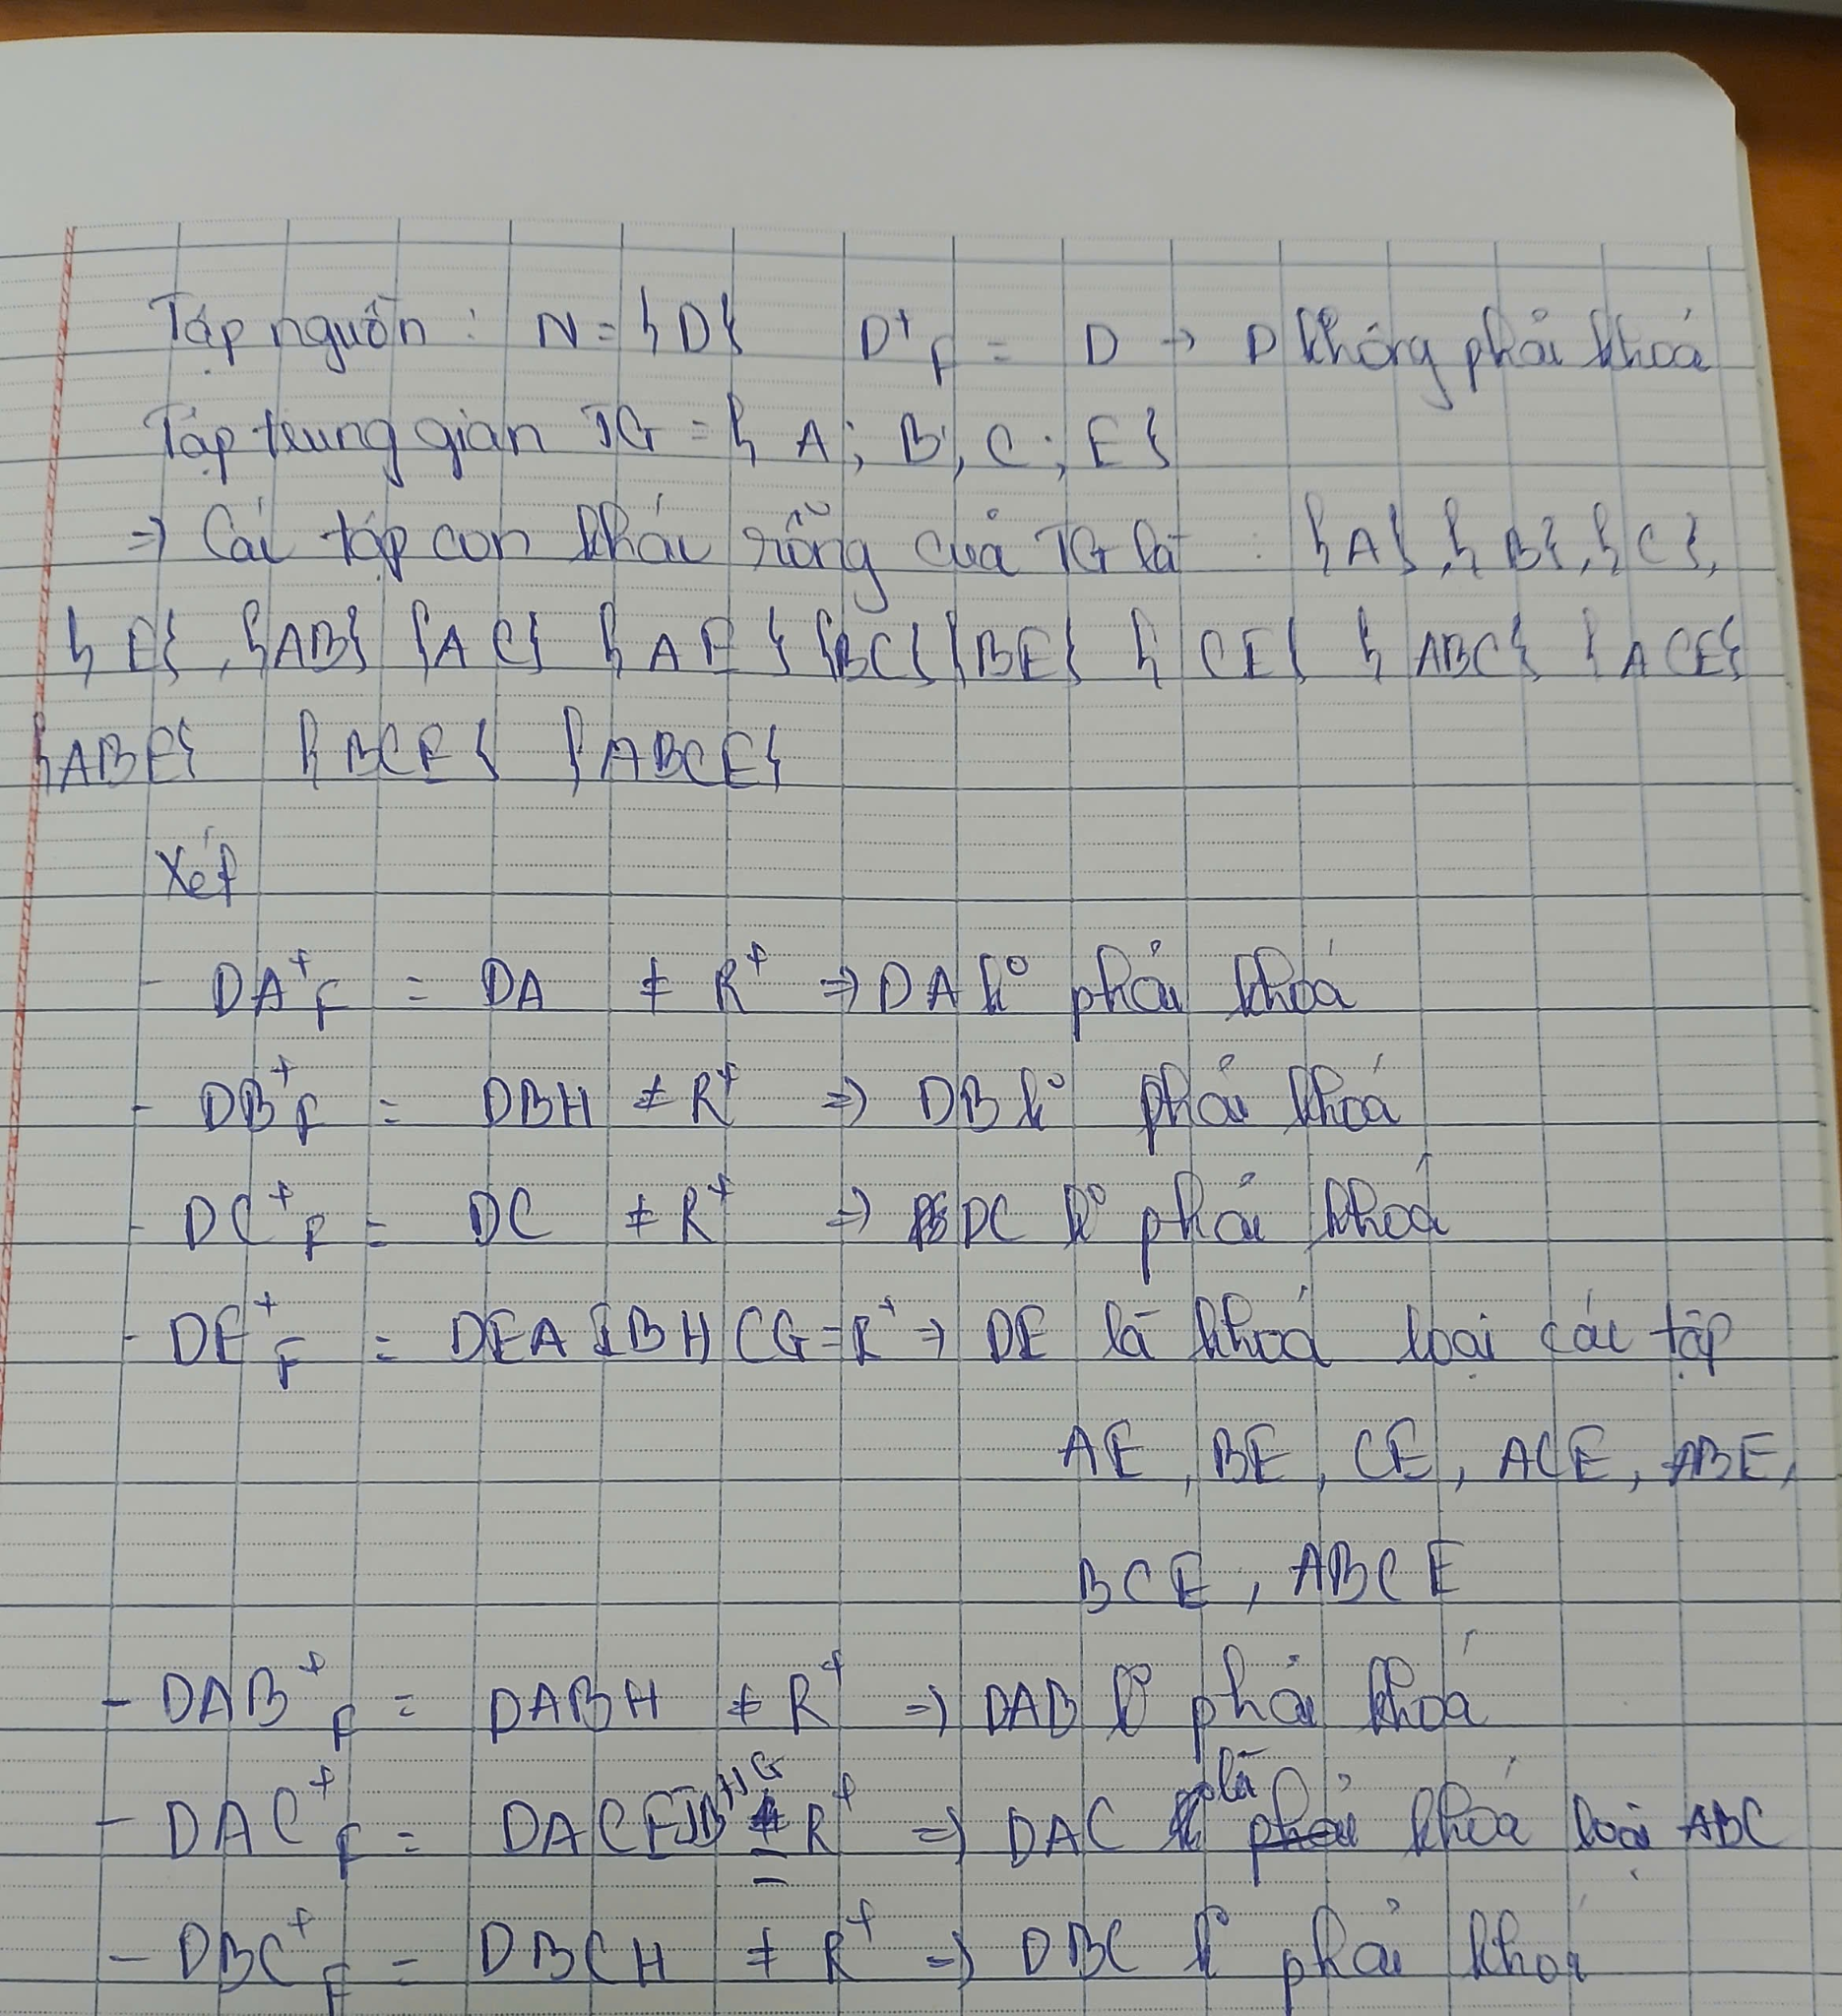 Tập nguồn : N = {D} D⁺F = D → D không phải khoá
Tập trung gian TG = { A; B, C ; E}
=> Các tập con khác rỗng của TG là : {A}, {B}, {C},
{E}, {AB} {AC} {AE} {BC} {BE} {CE} {ABC} {ACE}
{ABE} {BCE} {ABCE}
Xét
- DA⁺F = DA ≠ R⁺ => DA k° phải khoá
- DB⁺F = DBH ≠ R⁺ => DB k° phải khoá
- DC⁺F = DC ≠ R⁺ => DC k° phải khoá
- DE⁺F = DEAIBHCG = R⁺ => DE là khoá loại các tập
AE, BE, CE, ACE, ABE,
BCE, ABCE
- DAB⁺F = DABH ≠ R⁺ => DAB k° phải khoá
- DAC⁺F = DACEIBHG = R⁺ => DAC là khoá loại ABC
- DBC⁺F = DBCH ≠ R⁺ => DBC k° phải khoá